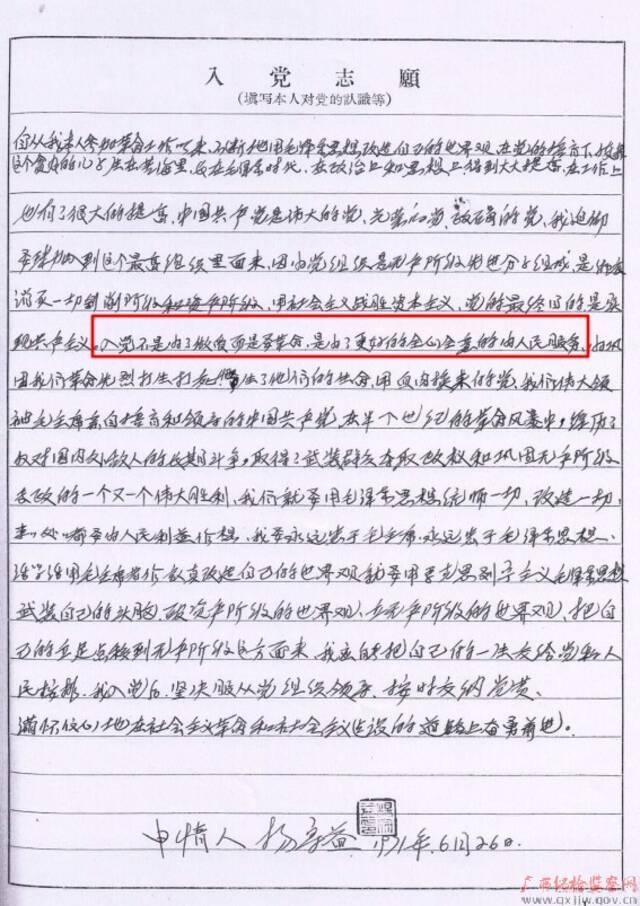 入党志願
(填写本人对党的認識等)
自从我本人参加革命工作以来,不断地用毛泽东思想改造自己的世界观,在党的培育下,
个贫农的儿子生在苦海里,长在毛泽东时代,在政治上和思想上得到大大提高,在工作上
也有了很大的提高,中国共产党是伟大的党,光荣的党,正确的党,我迫切
要求加入到这个最高组织里面来,因为党组织是无产阶级先进分子组成,是
消灭一切剥削阶级和资产阶级,用社会主义战胜资本主义,党的最终目的是实
现共产主义。入党不是为了做官而是要革命,是为了更好的全心全意的为人民服务,
因我们革命先烈打生打死,牺牲了他们的生命,用血肉换来的党,我们伟大领
袖毛主席亲自培育和领导的中国共产党,在半个世纪的革命风暴中,经历了
反对国内外敌人的长期斗争,取得了武装群众夺取政权和巩固无产阶级
专政的一个又一个伟大胜利,我们就要用毛泽东思想统帅一切,改造一切,
事事处处都要为人民利益作想,我要永远忠于毛主席,永远忠于毛泽东思想,
活学活用毛主席著作,认真改造自己的世界观,我要用马克思列宁主义毛泽东思想
武装自己的头脑,破资产阶级的世界观,立无产阶级的世界观,把自
己的立足点移到无产阶级这方面来,我应该把自己的一生交给党和人
民按排,我入党后,坚决服从党组织领导,按时交纳党费,
满怀信心地在社会主义革命和社会主义建设的道路上奋勇前进。
申情人 杨 1971年6月26日
广西纪检监察网
www.gxjjw.gov.cn